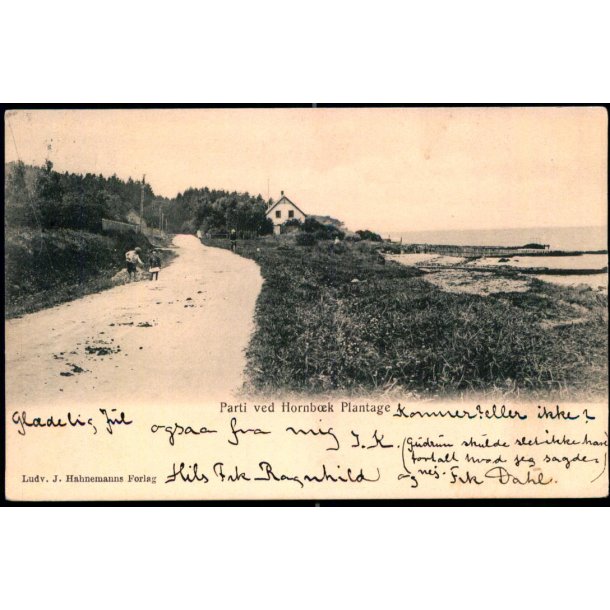 Parti ved Hornbœk Plantage
Kommer? eller ikke?
Glædelig Jul
ogsaa fra mig I. K.
(Gudrun skulde slet ikke have
fortalt hvad jeg sagde,
nej.)
Ludv. J. Hahnemanns Forlag
Hils Frk Ragnhild og Frk Dahl.